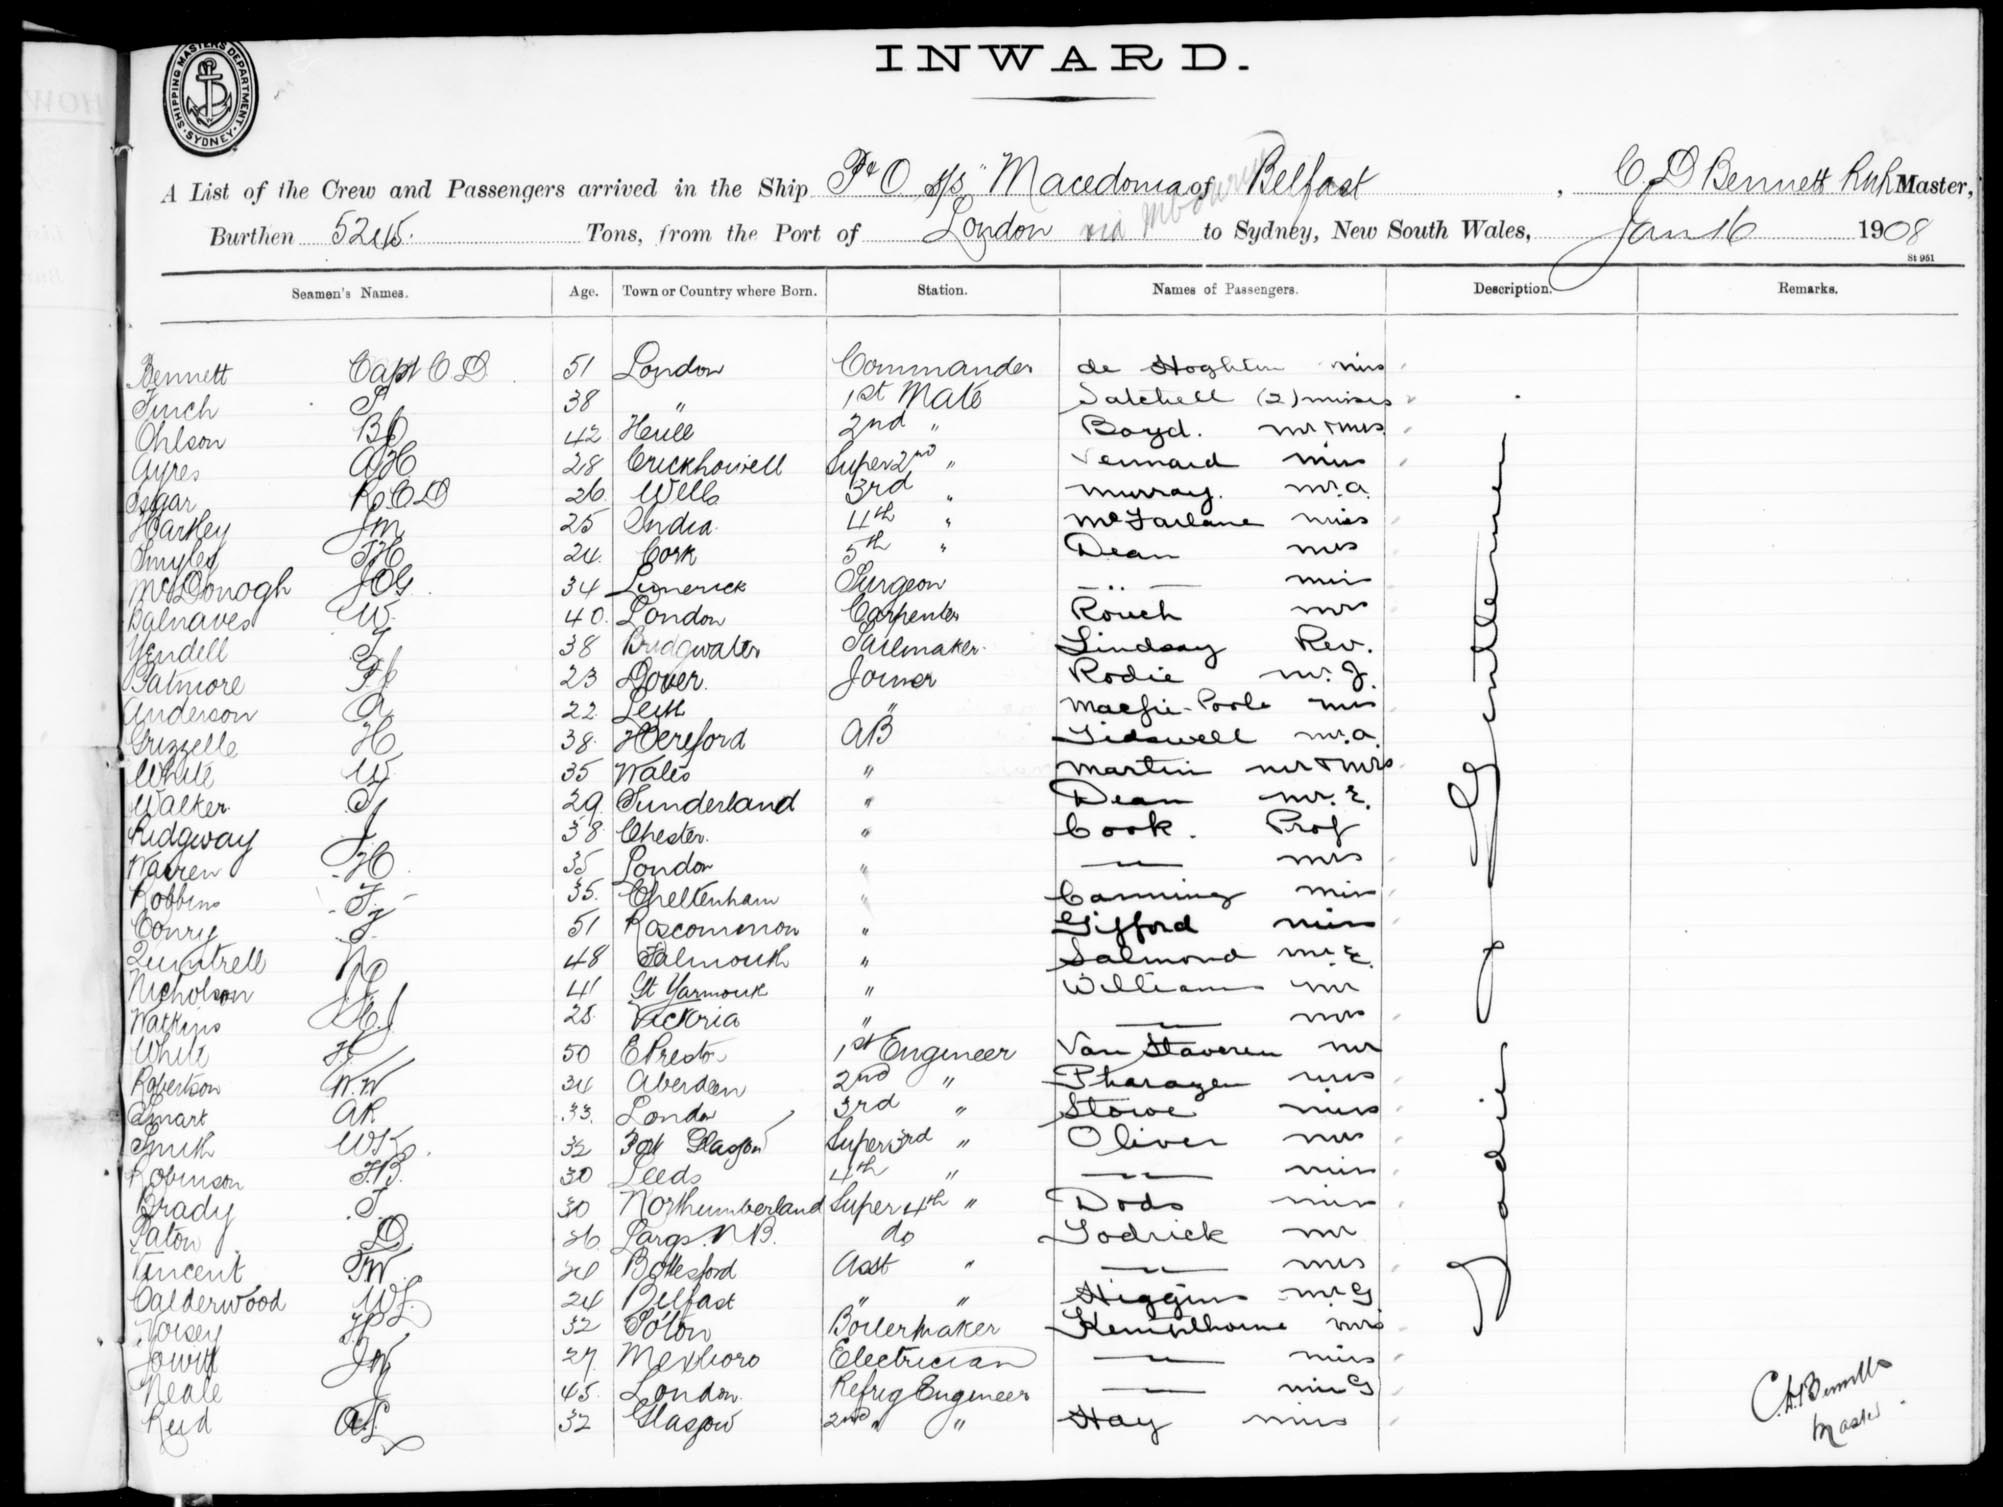 SHIPPING MASTERS DEPARTMENT · SYDNEY ·
INWARD.
A List of the Crew and Passengers arrived in the Ship P & O s/s "Macedonia of Belfast, C D Bennett RNR Master,
Burthen 5245. Tons, from the Port of London via to Sydney, New South Wales, Jan 16 1908
St 951
Seamen's Names. Age. Town or Country where Born. Station. Names of Passengers. Description. Remarks.
Bennett Capt C D 51 London Commander de Hoghton miss
Finch 38 " 1st Mate Satchell (2) misses
Ohlson 42 Hull 2nd " Boyd. mr & mrs
Ayres A H 28 Crickhowell Super 2nd " Vennard miss
Isgar R C D 26 Wells 3rd " Murray. mr. a.
Harkley J m 25 India 4th " McFarlane miss
Smyles 24 Cork 5th " Dean mrs
McDonogh J O G 34 Limerick Surgeon — " — miss
Balnaves W. 40. London Carpenter Rouch mrs
Yendell 38 Bridgwater Sailmaker. Lindsay Rev.
Patmore 23 Dover. Joiner Rodie mr. J.
Anderson A 22 Leith " Macfie-Poole mrs
Grizzelle H 38. Hereford AB Tidswell mr. a.
White W 35 Wales " Martin mr & mrs
Walker 29 Sunderland " Dean mr. E.
Ridgway J 38 Chester. " Cook. Prof
Warren H 35 London " — mrs
Robbins 35. Cheltenham " Canning miss
Conry 51 Roscommon " Gifford miss
Quintrell 48 Falmouth " Salmond mr. E.
Nicholson 41 Gt Yarmouth " Williams mr
Watkins 28. Victoria " — mrs
White 50 E Preston 1st Engineer Van Staveren mr
Robertson W. W 34 Aberdeen 2nd " Pharazyn miss
Smart A R 33. London 3rd " Stowe miss
Smith 32 Port Glasgow Super 3rd " Oliver mrs
Robinson F. B. 30 Leeds 4th " — miss
Brady 30 Northumberland Super 4th " Dods miss
Paton D 26. Largs. N B. do Godrick mr
Vincent 24 Bottesford Asst " — mrs
Calderwood W L. 24 Belfast " " Higgins mr G
Vorsey 32 Bolton Boilermaker Kempthorne mrs
Jowitt J W 27. Mexboro Electrician — miss
Neale 45. London Refrig Engineer — miss G
Reid 32 Glasgow 2nd " " Hay miss
Ladies & Gentlemen
Master